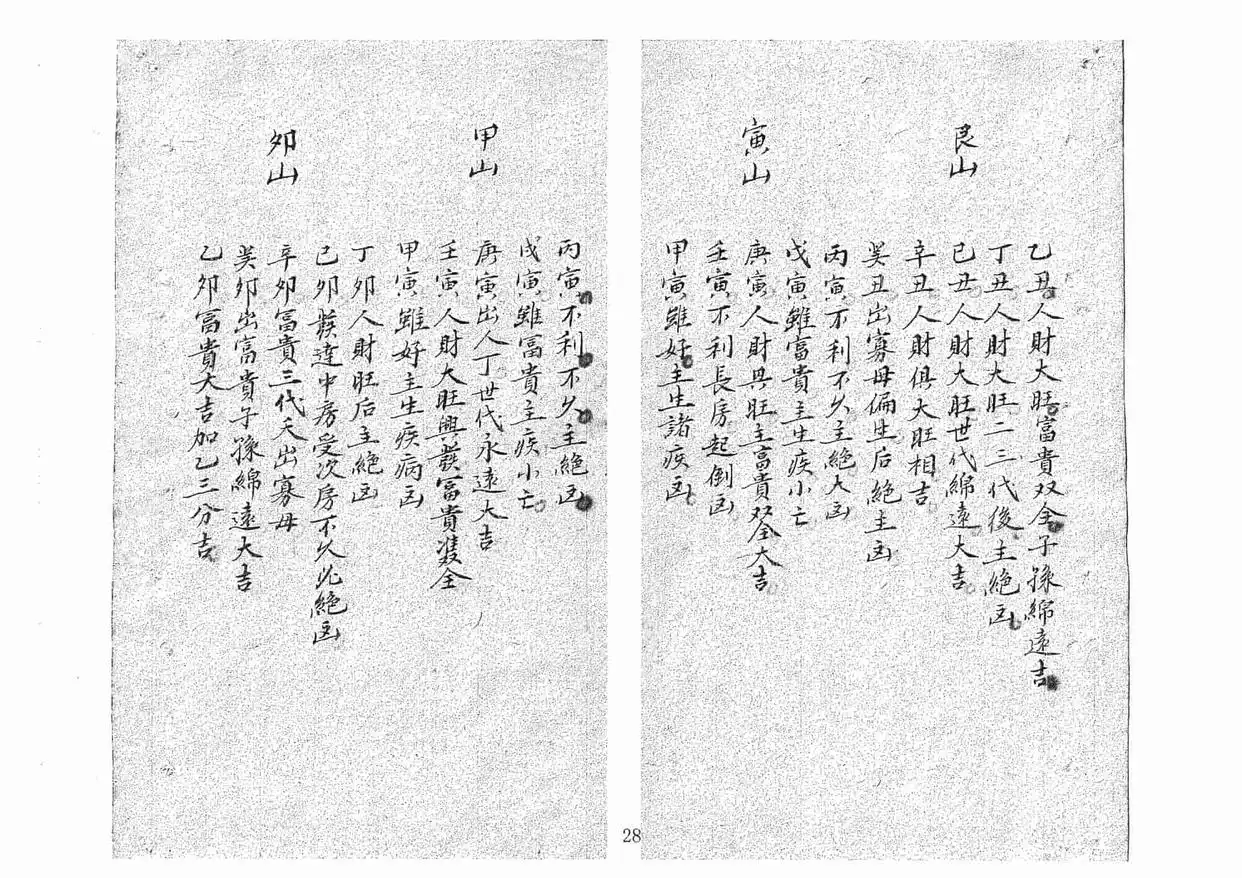 艮山
乙丑人財大旺富貴双全子孫綿遠吉
丁丑人財大旺二三代後主絶凶
己丑人財大旺世代綿遠大吉
辛丑人財俱大旺相吉
癸丑出寡母偏生后絶主凶
寅山
丙寅不利不久主絶大凶
戊寅雖富貴主生疾小亡
庚寅人財具旺主富貴双全大吉
壬寅不利長房起倒凶
甲寅雖好主生諸疾凶
甲山
丙寅不利不久主絶凶
戊寅雖富貴主疾小亡
庚寅出人丁世代永遠大吉
壬寅人財大旺興發富貴雙全
甲寅雖好主生疾病凶
卯山
丁卯人財旺后主絶凶
己卯發達中房受次房不久此絶凶
辛卯富貴三代夭出寡母
癸卯出富貴子孫綿遠大吉
乙卯富貴大吉加乙三分吉
28